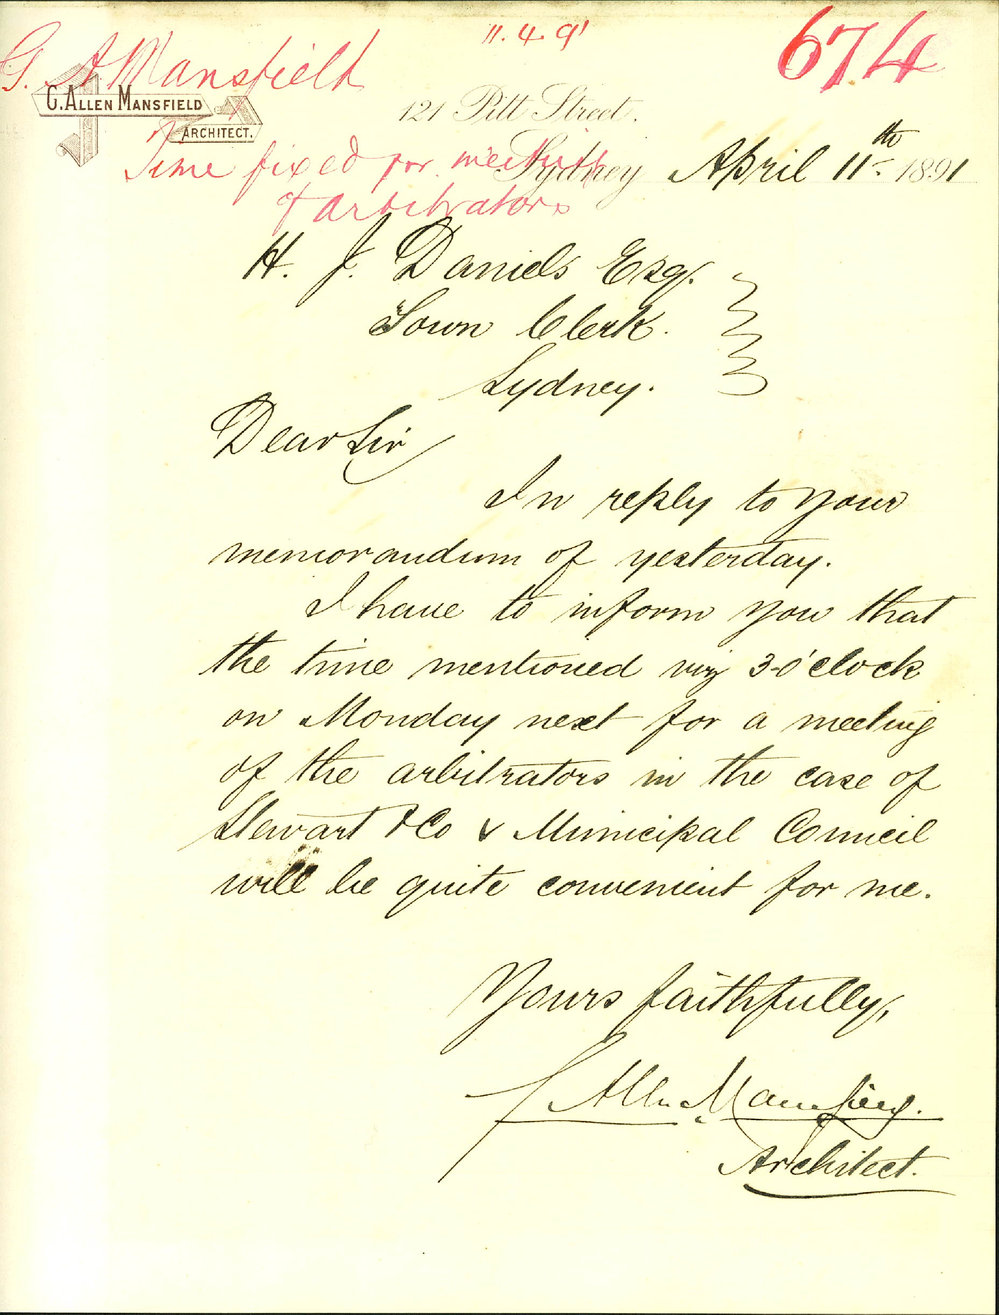 11.4.91
674
G. A Mansfield
G. ALLEN MANSFIELD
ARCHITECT.
121 Pitt Street.
Time fixed for meeting
of arbitrators
Sydney April 11th 1891
H. J. Daniels Esq.
Town Clerk.
Sydney.
Dear Sir
In reply to your
memorandum of yesterday.
I have to inform you that
the time mentioned viz 3-o'clock
on Monday next for a meeting
of the arbitrators in the case of
Stewart & Co v Municipal Council
will be quite convenient for me.
Yours faithfully,
G Allen Mansfield.
Architect.